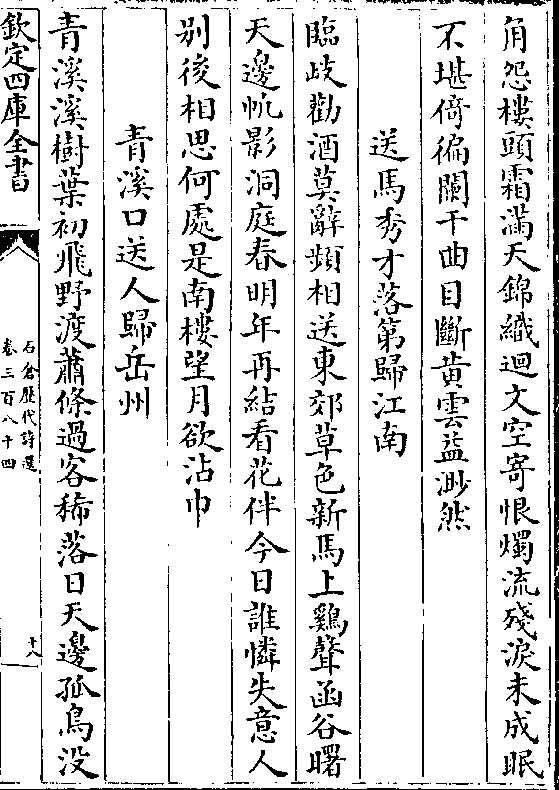 角怨樓頭霜滿天錦織迴文空寄恨燭流殘淚未成眠
不堪倚徧闌干曲目斷黃雲益渺然
送馬秀才落第歸江南
臨歧勸酒莫辭頻相送東郊草色新馬上鷄聲函谷曙
天邊帆影洞庭春明年再結看花伴今日誰憐失意人
别後相思何處是南樓望月欲沾巾
青溪口送人歸岳州
青溪溪樹葉初飛野渡蕭條過客稀落日天邊孤鳥没
欽定四庫全書
石倉歷代詩選
卷三百八十四
十八